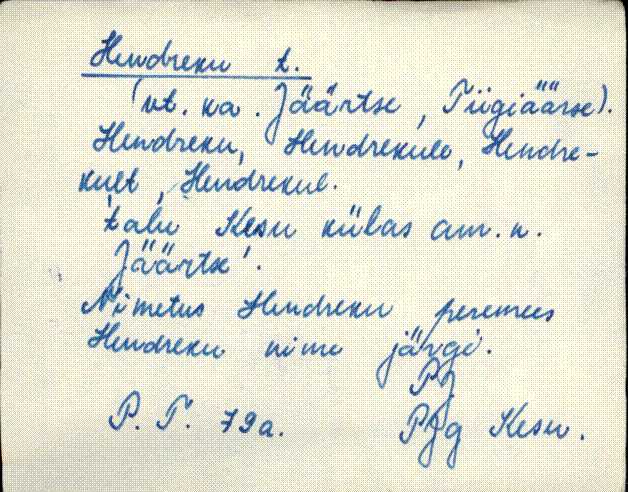 Hendreku t.
(vt. ka. Jäärtse, Tiigiäärse).
Hendreku, Hendrekule, Hendre-
kult, Hendrekul.
talu Kesu külas am. n.
Jäärtse'.
Nimetus Hendreku peremees
Hendreku nime järgi.
PJ
P. T. 79a. PJg Kesu.